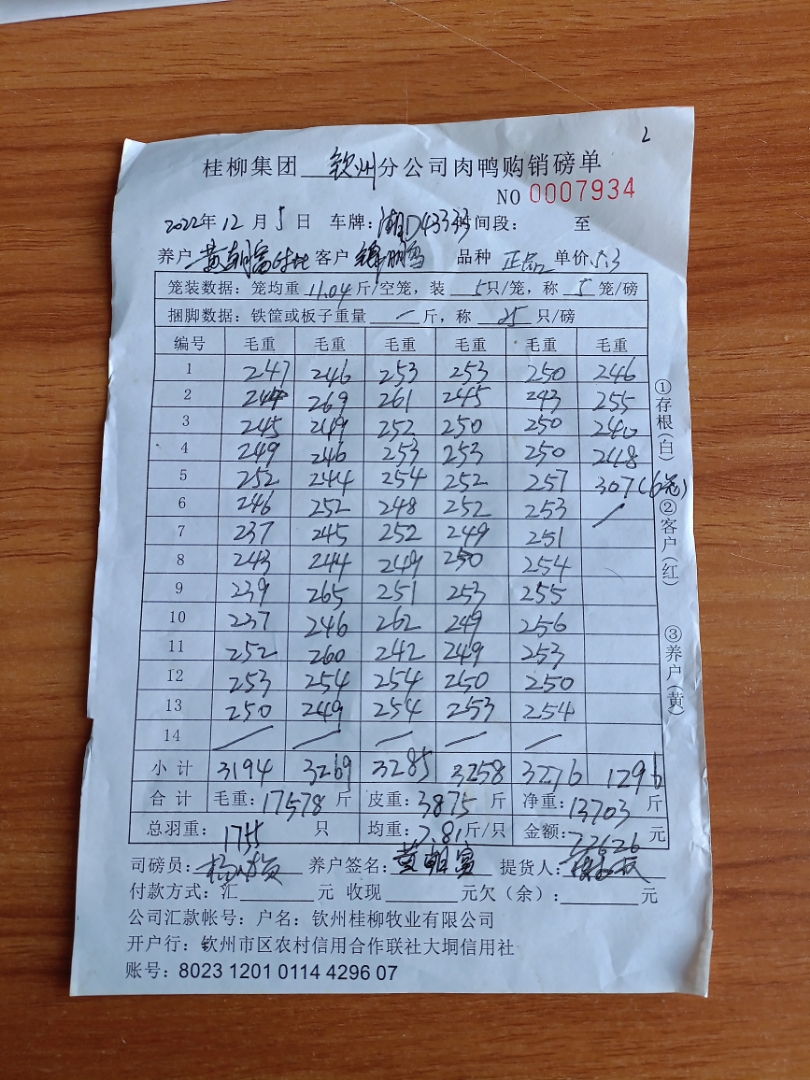 2
桂柳集团 钦州 分公司肉鸭购销磅单
NO 0007934
2022年12月5日 车牌:湘D43333 间段: 至
养户 黄朝富 客户 品种 正品 单价 5.3
笼装数据:笼均重 11.04 斤/空笼,装 5 只/笼,称 5 笼/磅
捆脚数据:铁筐或板子重量 — 斤,称 25 只/磅
编号 毛重 毛重 毛重 毛重 毛重 毛重
1 247 246 253 253 250 246
2 244 269 261 245 243 255
3 245 249 252 250 250 240
4 249 246 253 253 250 248
5 252 244 254 252 257 307(6笼)
6 246 252 248 252 253 /
7 237 245 252 249 251
8 243 244 249 250 254
9 239 265 251 253 255
10 237 246 262 249 256
11 252 260 242 249 253
12 253 254 254 250 250
13 250 249 254 253 254
14 — — — — —
小计 3194 3269 3285 3258 3276 1296
合计 毛重:17578 斤 皮重:3875 斤 净重:13703 斤
总羽重: 1755 只 均重:7.81 斤/只 金额:72626 元
司磅员: 养户签名:黄朝富 提货人:
付款方式:汇 元 收现 元欠(余): 元
公司汇款帐号:户名:钦州桂柳牧业有限公司
开户行:钦州市区农村信用合作联社大垌信用社
账号:8023 1201 0114 4296 07
①存根(白)
②客户(红)
③养户(黄)